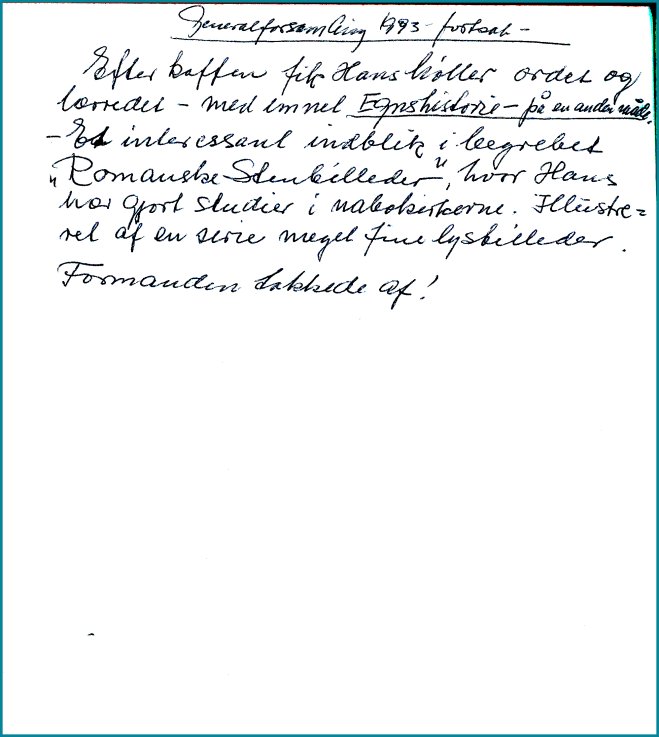 Generalforsamling 1993 - fortsat -
Efter kaffen fik Hans Møller ordet og
lærredet - med emnet Egnshistorie - på en anden måde.
- Et interessant indblik i begrebet
"Romanske Stenbilleder", hvor Hans
har gjort studier i nabokirkerne. Illustre=
ret af en serie meget fine lysbilleder.
Formanden takkede af!